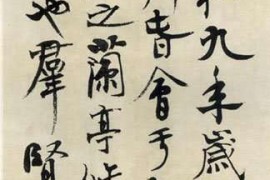 九年歲
會于
之蘭亭
也羣賢